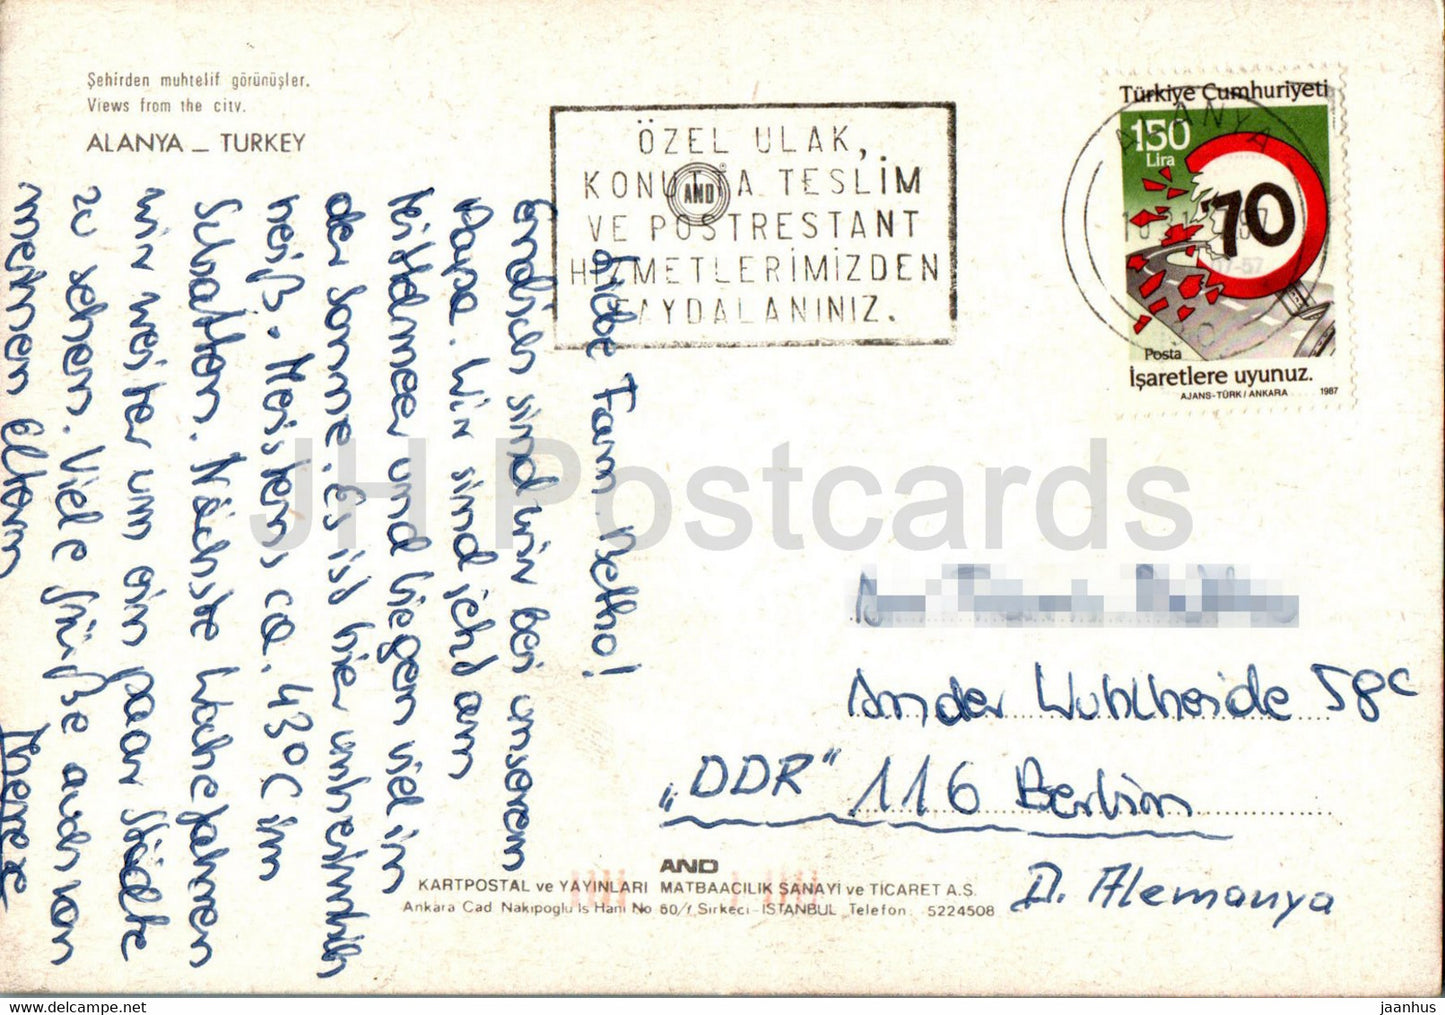 Şehirden muhtelif görünüşler.
Views from the city.
ALANYA _ TURKEY
ÖZEL ULAK,
KONUTTA TESLİM
VE POSTRESTANT
HİZMETLERİMİZDEN
FAYDALANINIZ.
AND
Türkiye Cumhuriyeti
150
Lira
70
Posta
İşaretlere uyunuz.
AJANS-TÜRK / ANKARA 1987
ALANYA
07-57
Liebe Fam. Betho!
Endlich sind wir bei unserem
Papa. Wir sind jetzt am
Mittelmeer und liegen viel in
der Sonne. Es ist hier unheimlich
heiß. Meistens ca. 43°C im
Schatten. Nächste Woche fahren
wir weiter um ein paar Städte
zu sehen. Viele Grüße auch von
meinen Eltern
An der Wuhlheide 58c
"DDR" 116 Berlin
D. Alemanya
AND
KARTPOSTAL ve YAYINLARI MATBAACILIK SANAYİ ve TİCARET A.S.
Ankara Cad Nakipoglu İs Hanı No 60/ Sirkeci - İSTANBUL Telefon: 5224508
JH Postcards
www.delcampe.net
jaanhus